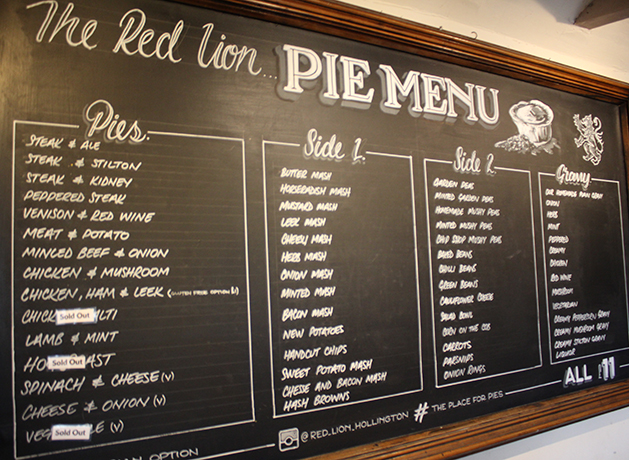 The Red Lion...
PIE MENU
Pies.
STEAK & ALE
STEAK & STILTON
STEAK & KIDNEY
PEPPERED STEAK
VENISON & RED WINE
MEAT & POTATO
MINCED BEEF & ONION
CHICKEN & MUSHROOM
CHICKEN, HAM & LEEK (GLUTEN FREE OPTION)
CHICK Sold Out LTI
LAMB & MINT
HO Sold Out AST
SPINACH & CHEESE (V)
CHEESE & ONION (V)
VEG Sold Out LE (V)
OPTION
Side 1.
BUTTER MASH
HORSERADISH MASH
MUSTARD MASH
LEEK MASH
CHEESY MASH
HERB MASH
ONION MASH
MINTED MASH
BACON MASH
NEW POTATOES
HANDCUT CHIPS
SWEET POTATO MASH
CHEESE AND BACON MASH
HASH BROWNS
Side 2
GARDEN PEAS
MINTED GARDEN PEAS
HOMEMADE MUSHY PEAS
MINTED MUSHY PEAS
CHIP SHOP MUSHY PEAS
BAKED BEANS
CHILLI BEANS
GREEN BEANS
CAULIFLOWER CHEESE
SALAD BOWL
CORN ON THE COB
CARROTS
PARSNIPS
ONION RINGS
Gravy
OUR HOMEMADE MAIN GRAVY
ONION
HERB
MINT
PEPPERED
CREAMY
CHICKEN
RED WINE
MUSHROOM
VEGETARIAN
CREAMY PEPPERCORN GRAVY
CREAMY MUSHROOM GRAVY
CREAMY STILTON GRAVY
LIQUOR
ALL £11
@RED_LION_HOLLINGTON # THE PLACE FOR PIES